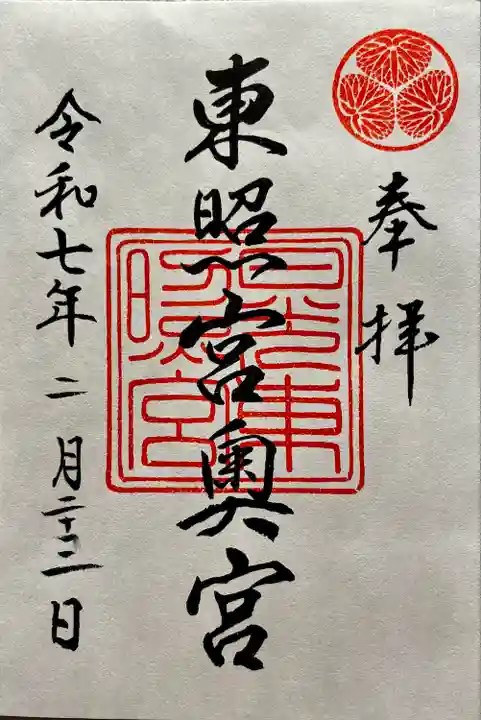 奉拝
東照宮奥宮
日光東
照宮
令和七年二月二十二日